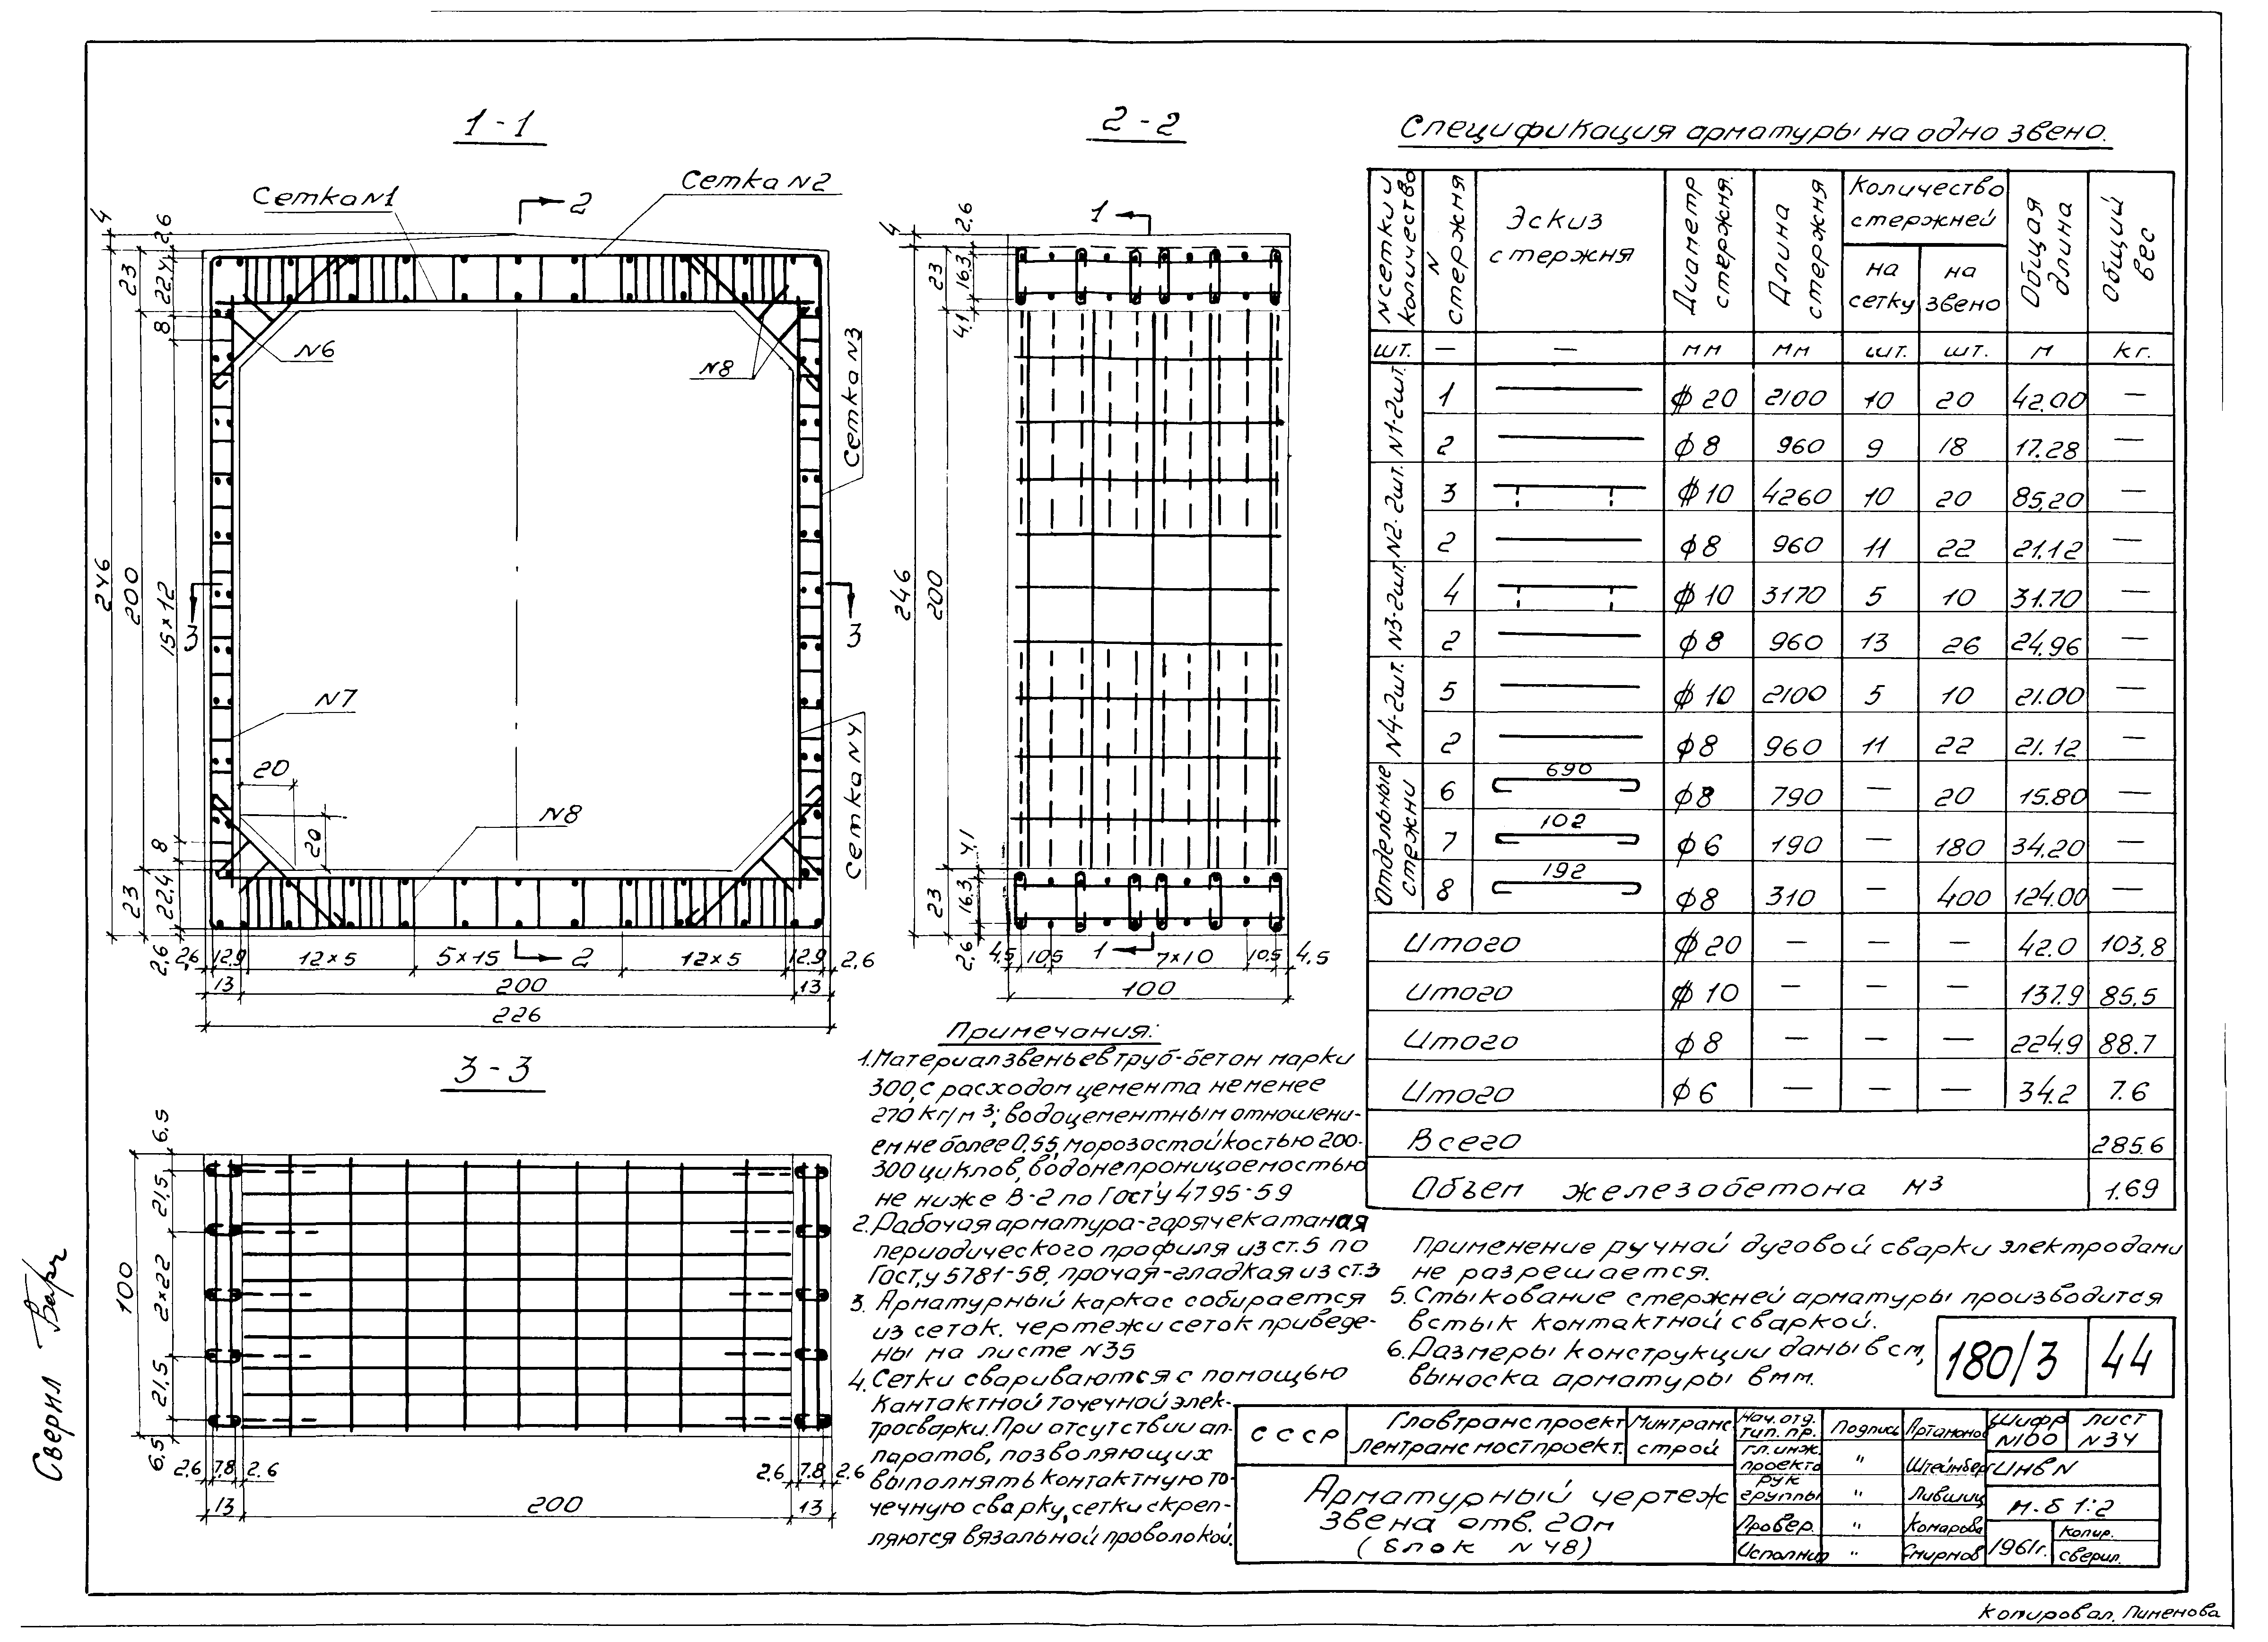 1-1
Сетка N1
Сетка N2
2
4
2.6
23
22.4
8
N6
N8
Сетка N3
246
200
15×12
3
3
N7
Сетка N4
20
20
N8
8
22.4
23
2.6
2.6
12.9
12×5
5×15
2
12×5
12.9
2.6
13
200
13
226
2-2
1
4
2.6
23
16.3
4.1
246
200
4.1
16.3
23
2.6
4.5
10.5
1
7×10
10.5
4.5
100
3-3
6.5
21.5
2×22
100
21.5
6.5
2.6
7.8
2.6
2.6
7.8
2.6
13
200
13
Спецификация арматуры на одно звено.
N сетки и количество
N стержня
Эскиз стержня
Диаметр стержня.
Длина стержня
Количество стержней
на сетку
на звено
Общая длина
Общий вес
шт. — — мм мм шт. шт. м кг.
N1-2шт.
1 ⌀ 20 2100 10 20 42.00 —
2 ϕ 8 960 9 18 17.28 —
N2-2шт.
3 ⌀ 10 4260 10 20 85.20 —
2 ϕ 8 960 11 22 21.12 —
N3-2шт.
4 ⌀ 10 3170 5 10 31.70 —
2 ϕ 8 960 13 26 24.96 —
N4-2шт.
5 ⌀ 10 2100 5 10 21.00 —
2 ϕ 8 960 11 22 21.12 —
Отдельные стержни
6 690 ϕ 8 790 — 20 15.80 —
7 102 ϕ 6 190 — 180 34.20 —
8 192 ϕ 8 310 — 400 124.00 —
Итого ⌀ 20 — — — 42.0 103.8
Итого ⌀ 10 — — — 137.9 85.5
Итого ϕ 8 — — — 224.9 88.7
Итого ϕ 6 — — — 34.2 7.6
Всего 285.6
Объем железобетона м3 1.69
Примечания:
1. Материал звеньев труб-бетон марки
300, с расходом цемента не менее
270 кг/м3; водоцементным отношени-
ем не более 0,55, морозостойкостью 200-
300 циклов, водонепроницаемостью
не ниже В-2 по ГОСТу 4795-59
2. Рабочая арматура-горячекатаная
периодического профиля из ст.5 по
ГОСТ,у 5781-58, прочая-гладкая из ст.3
3. Арматурный каркас собирается
из сеток. чертежи сеток приведе-
ны на листе N35
4. Сетки свариваются с помощью
контактной точечной элек-
тросварки. При отсутствии ап-
паратов, позволяющих
выполнять контактную то-
чечную сварку, сетки скреп-
ляются вязальной проволокой.
Применение ручной дуговой сварки электродами
не разрешается.
5. Стыкование стержней арматуры производится
встык контактной сваркой.
6. Размеры конструкции даны в см,
выноска арматуры в мм.
180/3 44
СССР
Главтранспроект
Лентрансмостпроект.
Минтранс
строй
Арматурный чертеж
звена отв. 2.0м
(блок N48)
Нач. отд. тип. пр. Подпись Артамонов
гл. инж. проекта " Штейнберг
рук группы " Лившиц
Провер. " Комарова
Исполнил " Смирнов
Шифр N180
лист N34
Инв N
М-б 1:2
1961г.
Копир.
сверил.
Сверил
Копировал. Пименова